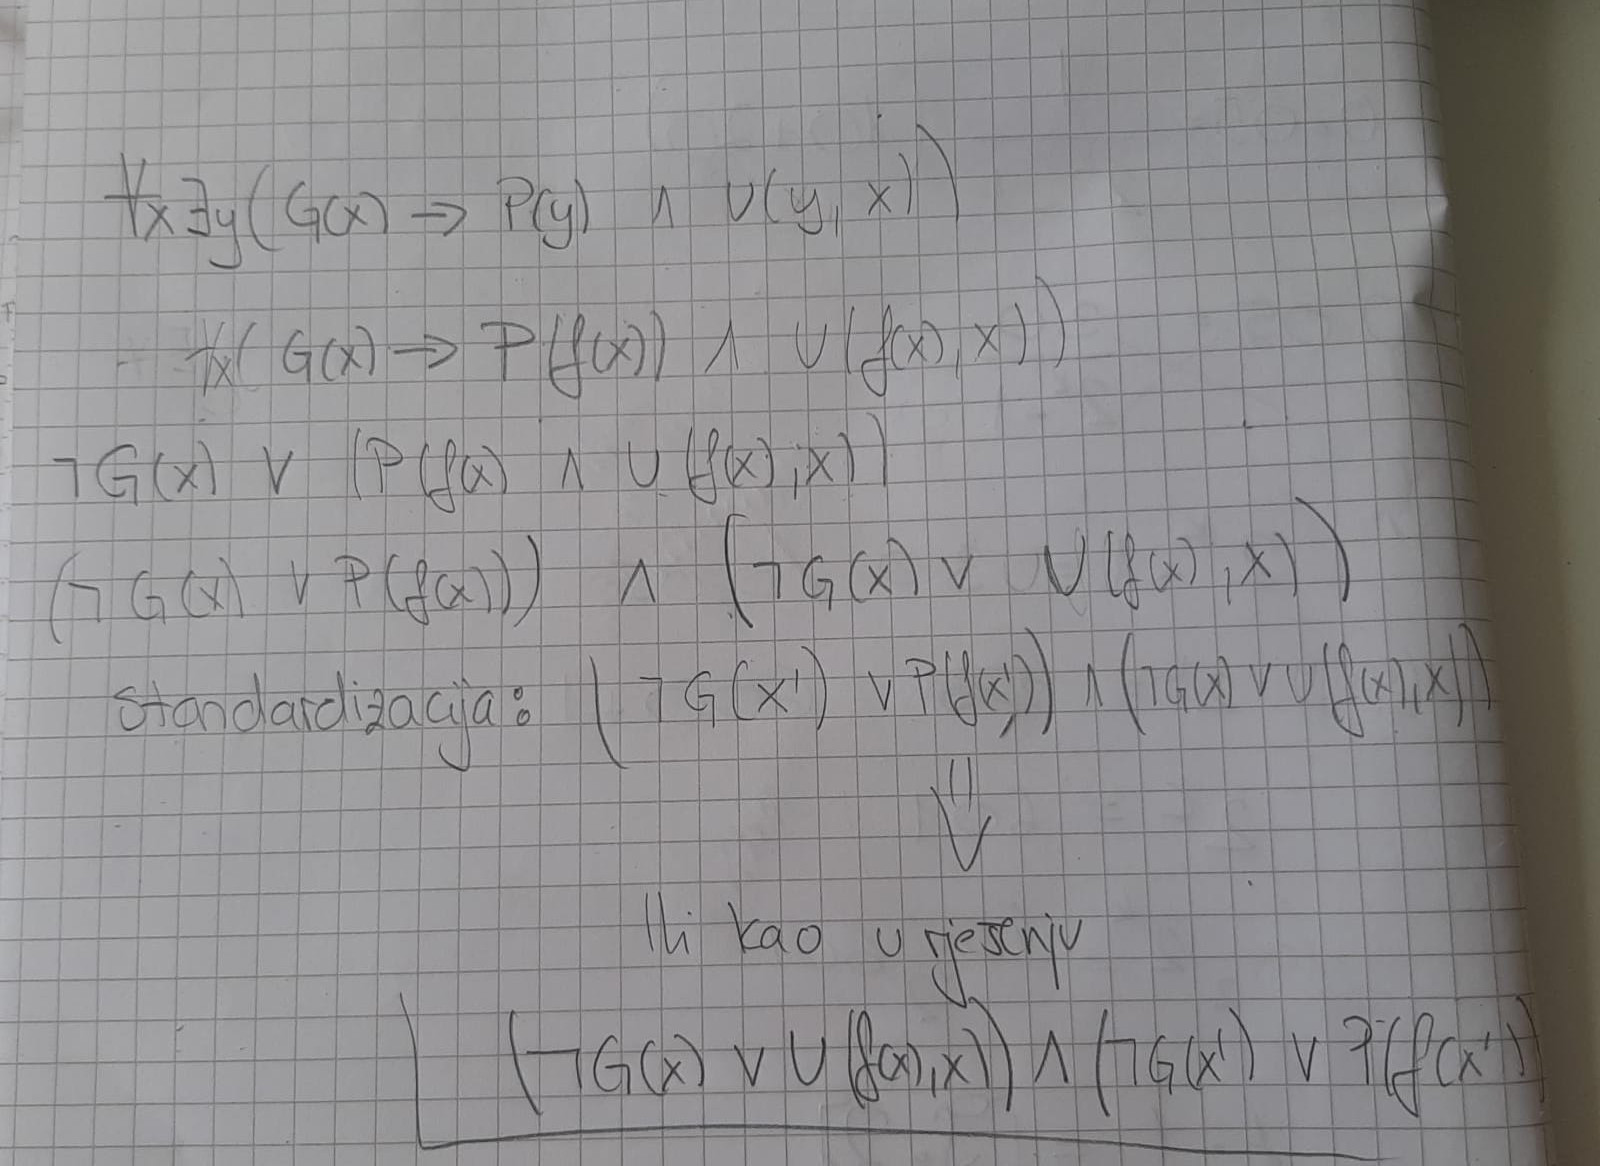 ∀x∃y(G(x) → P(y) ∧ U(y, x))
∀x(G(x) → P(f(x)) ∧ U(f(x), x))
¬G(x) ∨ (P(f(x) ∧ U(f(x), x))
(¬G(x) ∨ P(f(x))) ∧ (¬G(x) ∨ U(f(x), x))
Standardizacija: (¬G(x') ∨ P(f(x'))) ∧ (¬G(x) ∨ U(f(x), x))
⇓
Ili kao u rjesenju
(¬G(x) ∨ U(f(x), x)) ∧ (¬G(x') ∨ P(f(x'))